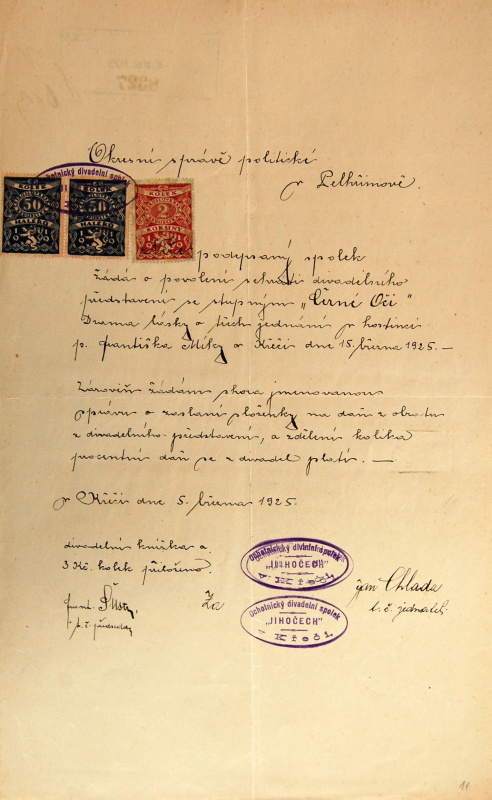 8027
Okresní správě politické
v Pelhřimově.
Ochotnický divadelní spolek
KOLEK
50
HALÉŘŮ
KOLEK
50
HALÉŘŮ
KOLEK
2
KORUNY
podepsaný spolek
žádá o povolení sehrati divadelního
představení se vstupným „Černé Oči"
Drama lásky o třech jednání v hostinci
p. Františka Míky v Křeči dne 15. března 1925. —
Zároveň žádám shora jmenovanou
správu o zaslání složenky na daň z obratu
z divadelního představení, a sdělení kolika
procentní daň se z divadel platí. —
v Křeči dne 5. března 1925.
divadelní knížka a
3 Kč. kolek přiloženo.
Za
Frant.
t. č. předseda
Ochotnický divadelní spolek
„JIHOČECH"
v Křeči.
Ochotnický divadelní spolek
„JIHOČECH"
v Křeči.
Jan Chlada
t. č. jednatel.